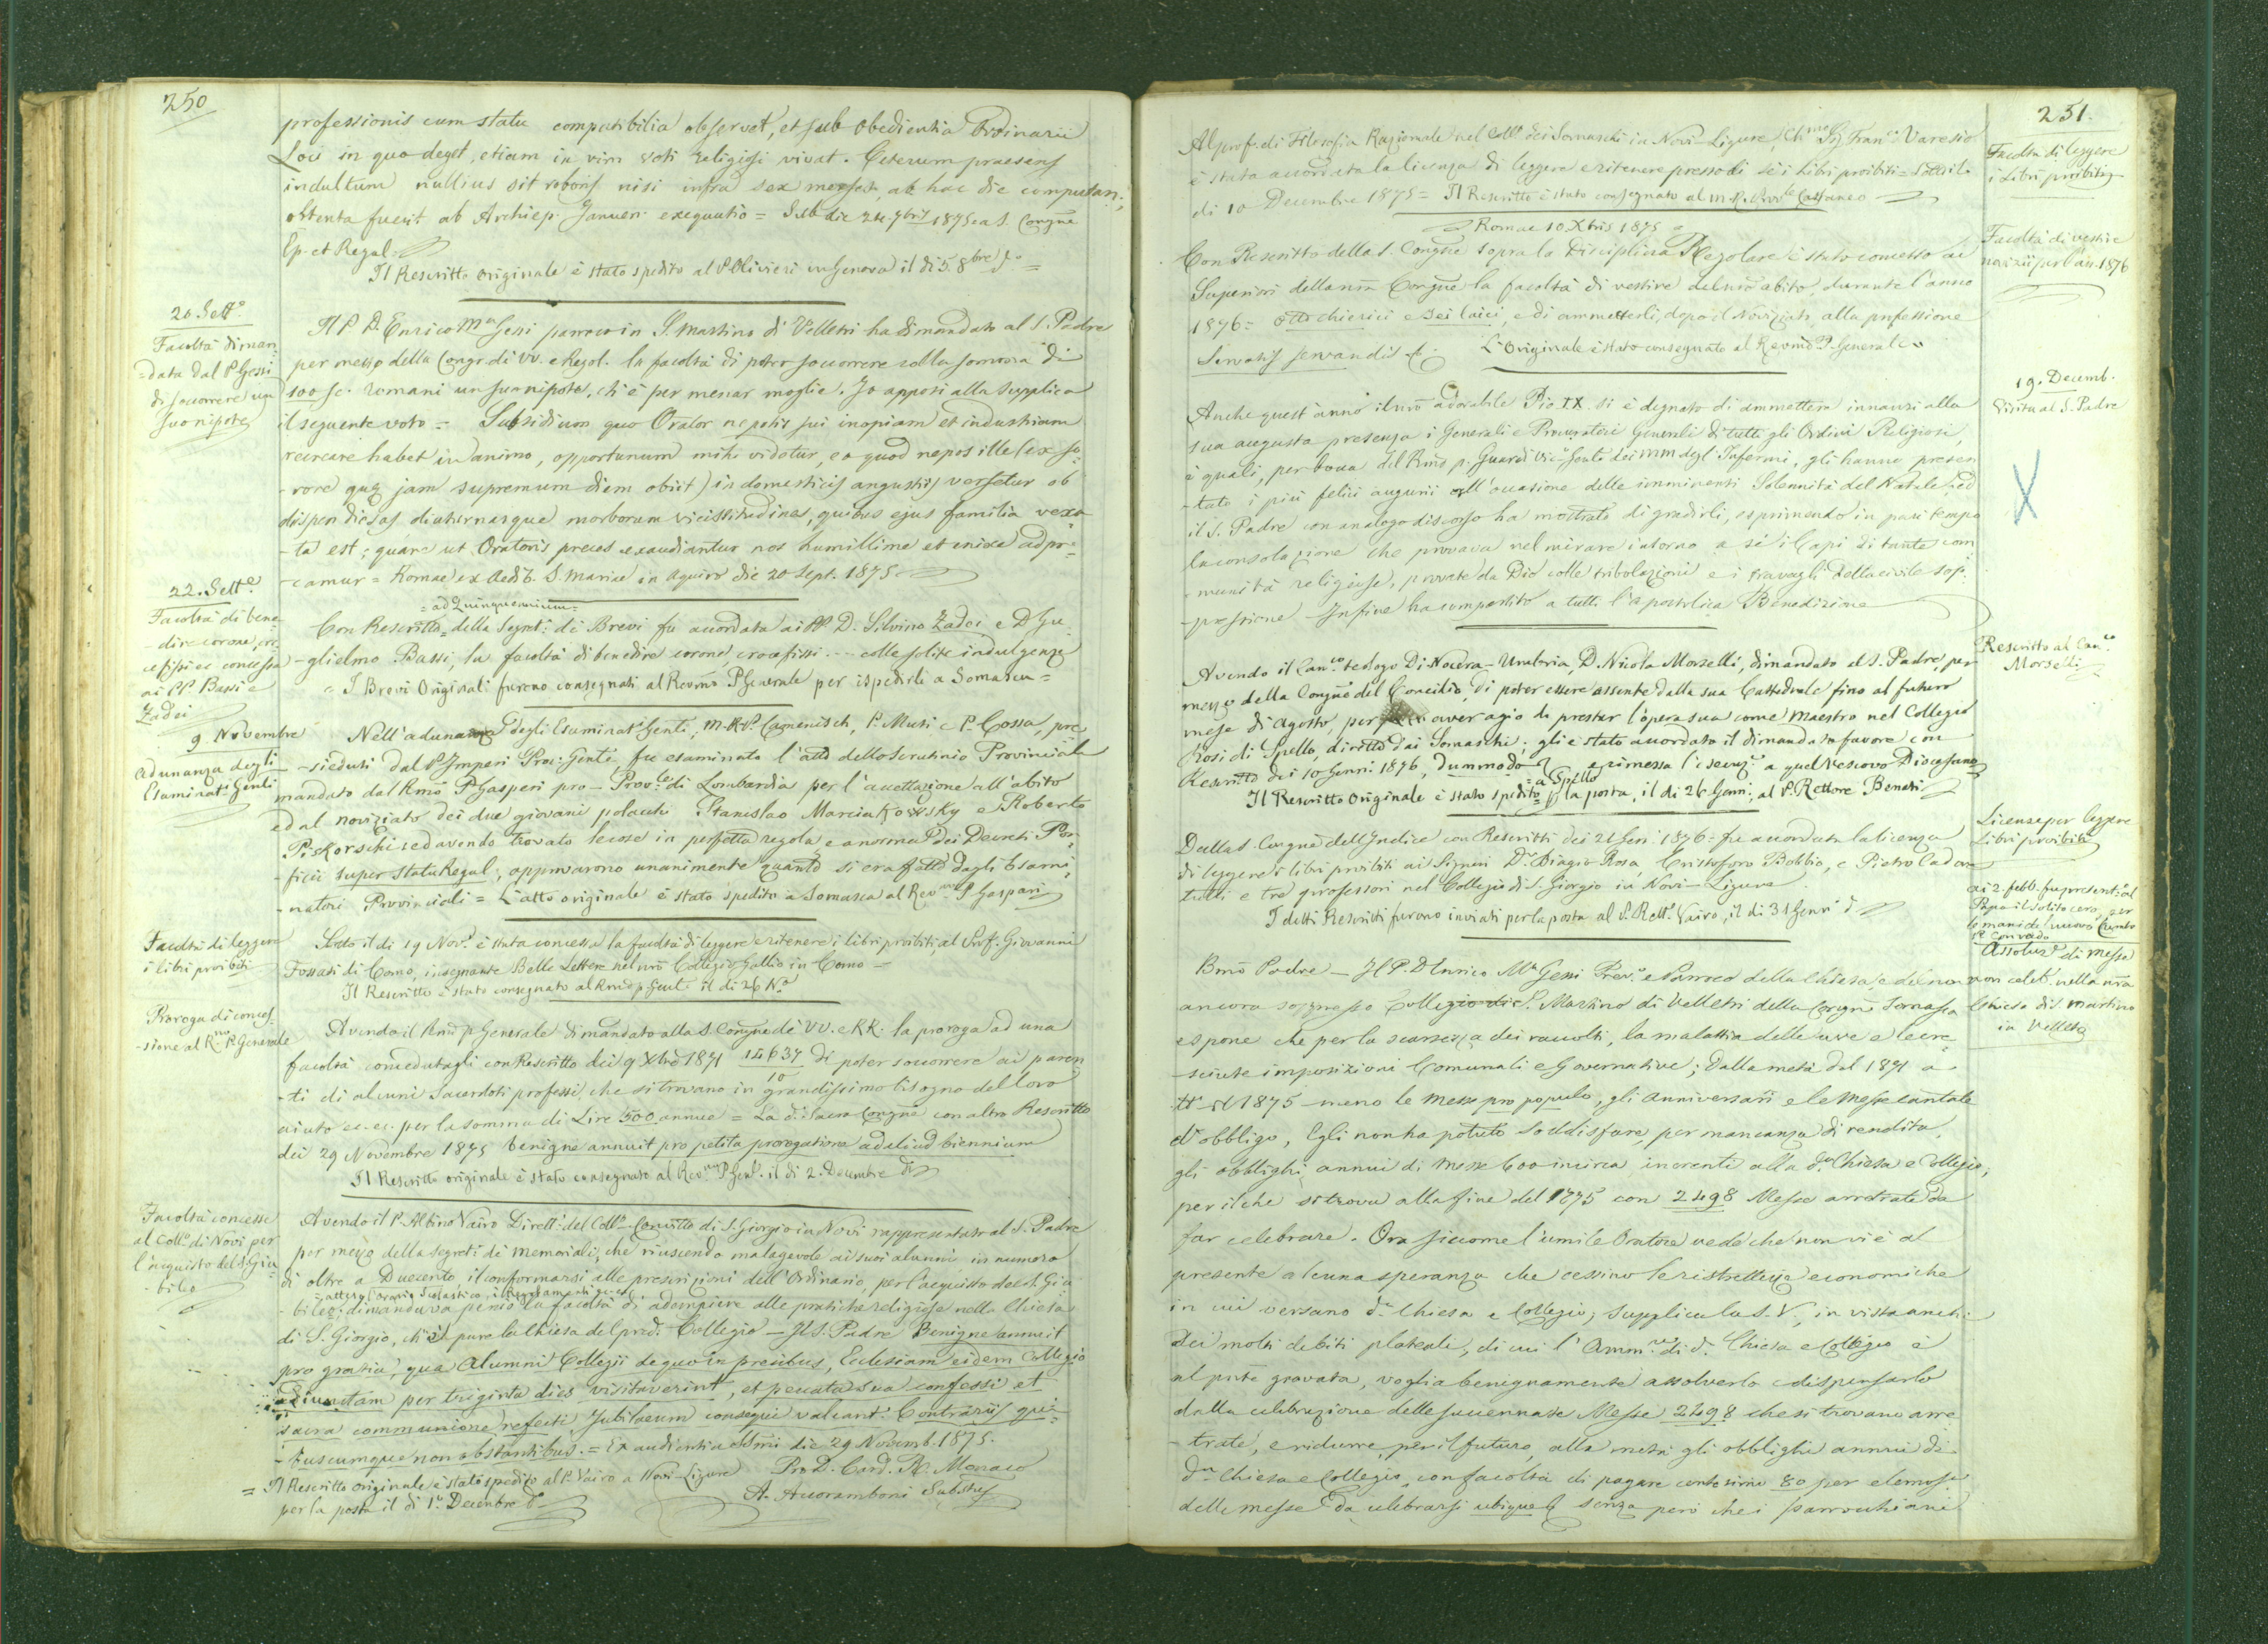 250
professionis cum statu compatibilia observet, et sub obedientia Ordinarii
Loci in quo deget, etiam in vim voti religiosi vivat. Ceterum praesens
indultum nullius sit roboris nisi infra sex menses, ab hac die computan:,
obtenta fuerit ab Archiep. Januen. exequutio = Sub die 24. 7bris 1875 ea S. Congne
Ep. et Regul =
Il Rescritto originale è stato spedito al P. Olivieri in Genova il dì 5. 8bre do =
20. Sette
Facoltà diman
=data dal P. Gessi
di soccorrere un
suo nipote
Il P. D. Enrico Ma Gessi parroco in S. Martino di Velletri ha dimandato al S. Padre
per mezzo della Congr. di VV. e Regol. la facoltà di poter soccorrere colla somma di
100 sc. romani un suo nipote, ch'è per menar moglie. Io apposi alla supplica
il seguente voto = Subsidium quo Orator nepotis sui inopiam et industriam
recreare habet in animo, opportunum mihi videtur, eo quod nepos ille (ex so=
-rore quae jam supremum diem obiit) in domesticis angustiis versetur ob
dispendiosas diuturnasque morborum vicissitudines, quibus ejus familia vexa
-ta est; quare ut Oratoris preces exaudiantur nos humillime et enixe adpre=
-camur = Romae ex Aedib. S. Mariae in Aquiro die 20 Sept. 1875
22. Sette
Facoltà di bene
-dire corone, cro
cefissi ec. concessa
ai PP. Bassi e
Zadei
=ad Quinquennium=
Con Rescritto della Segret: di Brevi fu accordata ai PP. D. Silvino Zadei e D. Gu
-glielmo Bassi, la facoltà di benedire corone, crocefissi .... colle solite indulgenze
= I Brevi Originali furono consegnati al Revmo P. Generale per ispedirli a Somasca =
9 Novembre
Adunanza degli
Esaminat: Genli
Nell'adunanza degli Esaminat: Genli, M. R. P. Camenisch, P. Muti e P. Cossa, pre
-sieduti dal P. Imperi Proc: Genle fu esaminato l'atto dello scrutinio Provinciale
mandato dal Rmo P. Gasperi pro-Provle di Lombardia per l'accettazione all'abito
ed al noviziato dei due giovani polacchi Stanislao Marciakowsky e Roberto
Piskorschi; ed avendo trovato le cose in perfetta regola e a norma dei Decreti Pon=
-ficii super statu Regul:, approvarono unanimente quanto si era fatto dagli Esami=
-natori Provinciali = L'atto originale è stato spedito a Somasca al Revmo P. Gaspari
Facoltà di leggere
i libri proibiti
Sotto il dì 19 Nove è stata concessa la facoltà di leggere e ritenere i libri proibiti al Prof. Giovanni
Fossati di Como, insegnante Belle Lettere nel nro Collegio Gallio in Como =
Il Rescritto è stato consegnato al Rmo p. Genle il dì 26 Ne
Proroga di conces-
-sione al Rmo P. Generale
Avendo il Rmo p. Generale dimandato alla S. Congne de' VV. e RR. la proroga ad una
facoltà concedutagli con Rescritto dei 9 Xbre 1871 14637/10 di poter soccorrere ai paren
-ti di alcuni Sacerdoti professi, che si trovano in grandissimo bisogno del loro
aiuto ec. ec. per la somma di Lire 500 annue = La d. Sacra Congne con altro Rescritto
dei 29 Novembre 1875 benigne annuit pro petita prorogatione ad aliud biennium
Il Rescritto originale è stato consegnato al Revmo P. Genle il dì 2. Decembre do
Facoltà concesse
al Collo di Novi per
l'acquisto del S. Giu
-bileo
Avendo il P. Albino Vairo Dirett: del Collo-Convitto di S. Giorgio in Novi rappresentato al S. Padre
per mezzo della Segret: de' Memoriali, che riuscendo malagevole ai suoi alunni in numero
di oltre a Duecento il conformarsi alle prescrizioni dell'Ordinario per l'acquisto del S. Giu
=atteso l'Orario Scolastico, i Regolamenti ec. ec.
-bileo; dimandava perciò la facoltà di adempiere alle pratiche religiose nella Chiesa
di S. Giorgio, ch'è pure la Chiesa del pred: Collegio — Il S. Padre Benigne annuit
pro gratia, qua Alumni Collegii de quo in precibus, Ecclesiam eidem Collegio
adiunctam per triginta dies visitaverint, et peccata sua confessi et
sacra communione refecti, Jubilaeum consequi valeant. Contrariis qui=
-buscumque non obstantibus. = Ex audientia SSmi die 29 Novemb. 1875.
Pro D. Card. R. Monaco
= Il Rescritto originale è stato spedito al P. Vairo a Novi-Ligure
A. Accoramboni Subsus
per la posta il dì 1o Decembre do
251.
Al prof. di Filosofia Razionale nel Collo dei Somaschi in Novi-Ligure, Chmo Sig. Franco Varesio
è stata accordata la licenza di leggere e ritenere presso di sè i libri proibiti = Sotto il
di 10 Decembre 1875 = Il Rescritto è stato consegnato al M. R. Provle Cattaneo
Facoltà di leggere
i Libri proibiti
Romae 10 Xbris 1875
Con Rescritto della S. Congne sopra la Disciplina Regolare è stato concesso ai
Superiori della nra Congne la facoltà di vestire del nro abito, durante l'anno
1876= otto chierici e sei laici, e di ammetterli, dopo il Noviziato, alla professione
Servatis servandis &c. L'originale è stato consegnato al Revmo P. Generale
Facoltà di vestire
novizii per l'an. 1876
19. Decemb.
Visita al S. Padre
Anche quest'anno il nro adorabile Pio IX. si è degnato di ammettere innanzi alla
sua augusta presenza i Generali e Procuratori Generali di tutti gli Ordini Religiosi,
i quali, per bocca del Rmo p. Guardi Vico Genle dei MM degl'Infermi, gli hanno presen
-tato i più felici augurii all'occasione delle imminenti Solennità del Natale, ed
il S. Padre con analogo discorso ha mostrato di gradirli, esprimendo in pari tempo
la consolazione che provava nel mirare intorno a sè i Capi di tante com
-munità religiose, provate da Dio colle tribolazioni e i travagli della civile sop
-pressione. Infine ha compartito a tutti l'apostolica Benedizione
X
Rescritto al Canco
Morselli
Avendo il Canco teologo di Nocera-Umbria, D. Nicola Morselli, dimandato al S. Padre, per
mezzo della Congne del Concilio, di poter essere assente dalla sua Cattedrale fino al futuro
mese di Agosto, per aver agio di prestar l'opera sua come Maestro nel Collegio
Rosi di Spello, diretto dai Somaschi; gli è stato accordato il dimandato favore con
Rescritto dei 10 Genn: 1876, dummodo &c e rimessa l'esecuze a quel Vescovo Diocesano
=a Spello=
Il Rescritto Originale è stato spedito p la posta, il dì 26 Genn:, al P. Rettore Benati
Licenze per leggere
Libri proibiti
Dalla S. Congne dell'Indice con Rescritti dei 21 Gen: 1876 = fu accordata la licenza
di leggere i libri proibiti ai Signori Dr Biagio Rosa, Cristoforo Bobbio, e Pietro Cadore
tutti e tre professori nel Collegio di S. Giorgio in Novi-Ligure
I detti Rescritti furono inviati per la posta al P. Rette Vairo, il dì 31 Genno do
ai 2. febb. fu present: al
Papa il solito cero, per
le mani del nuovo
P. Corrado
Assoluze di Messe
non celeb. nella nra
Chiesa di S. Martino
in Velletri
Bmo Padre — Il P. D. Enrico Ma Gessi Prevo e Parroco della Chiesa, e del non
ancora soppresso Collegio di S. Martino di Velletri della Congne Somasca
espone che per la scarsezza dei raccolti, la malattia delle uve e le cre
-sciute imposizioni Comunali e Governative; dalla metà del 1871 a
tto il 1875 meno le Messe pro populo, gli anniversarii e le Messe cantate
d'obbligo, Egli non ha potuto soddisfare, per mancanza di rendita,
gli obblighi annui di Messe 600 incirca, inerenti alla da Chiesa e Collegio;
per il che si trova alla fine del 1875 con 2498 Messe arretrate da
far celebrare. Ora siccome l'umile Oratore vede che non vi è al
presente alcuna speranza che cessino le ristrettezze economiche
in cui versano da Chiesa e Collegio; supplica la S. V., in vista anche
dei molti debiti plateale, di cui l'Ammne di da Chiesa e Collegio è
al pnte gravata, voglia benignamente assolverlo e dispensarlo
dalla celebrazione delle succennate Messe 2498 che si trovano arre
-trate, e ridurre, per il futuro, alla metà gli obblighi annui di
da Chiesa e Collegio, con facoltà di pagare centesimi 80 per elemosa
delle messe da celebrarsi ubique &c senza però che i parrochiani